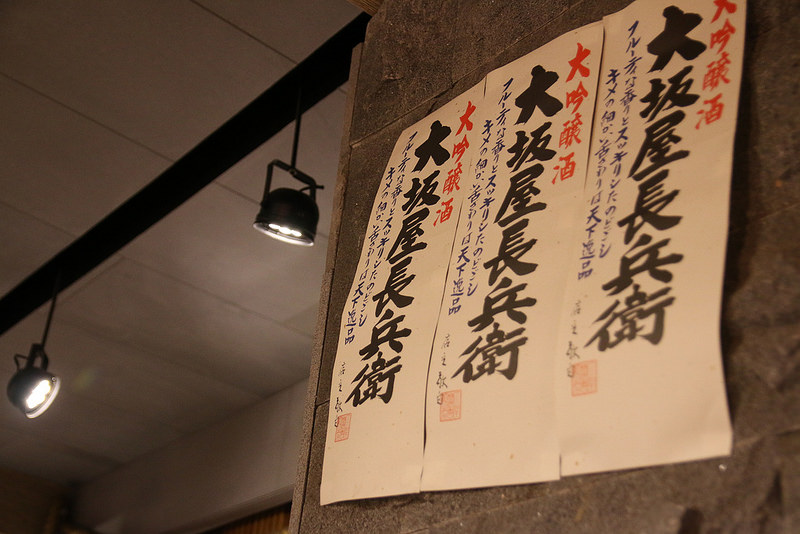 大吟醸酒
大坂屋長兵衛
フルーティな香りとスッキリしたのどごし
キメの細かい舌ざわりは天下逸品
店主敬白
大吟醸酒
大坂屋長兵衛
フルーティな香りとスッキリしたのどごし
キメの細かい舌ざわりは天下逸品
店主敬白
大吟醸酒
大坂屋長兵衛
フルーティな香りとスッキリしたのどごし
キメの細かい舌ざわりは天下逸品
店主敬白